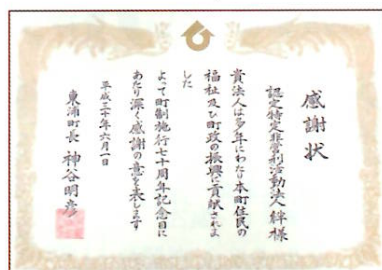 感謝状
認定特定非営利活動法人 絆 様
貴法人は多年にわたり本町住民の
福祉及び町政の振興に貢献されま
した
よって町制施行七十周年記念日に
あたり深く感謝の意を表します
平成三十年六月一日
東浦町長 神谷明彦